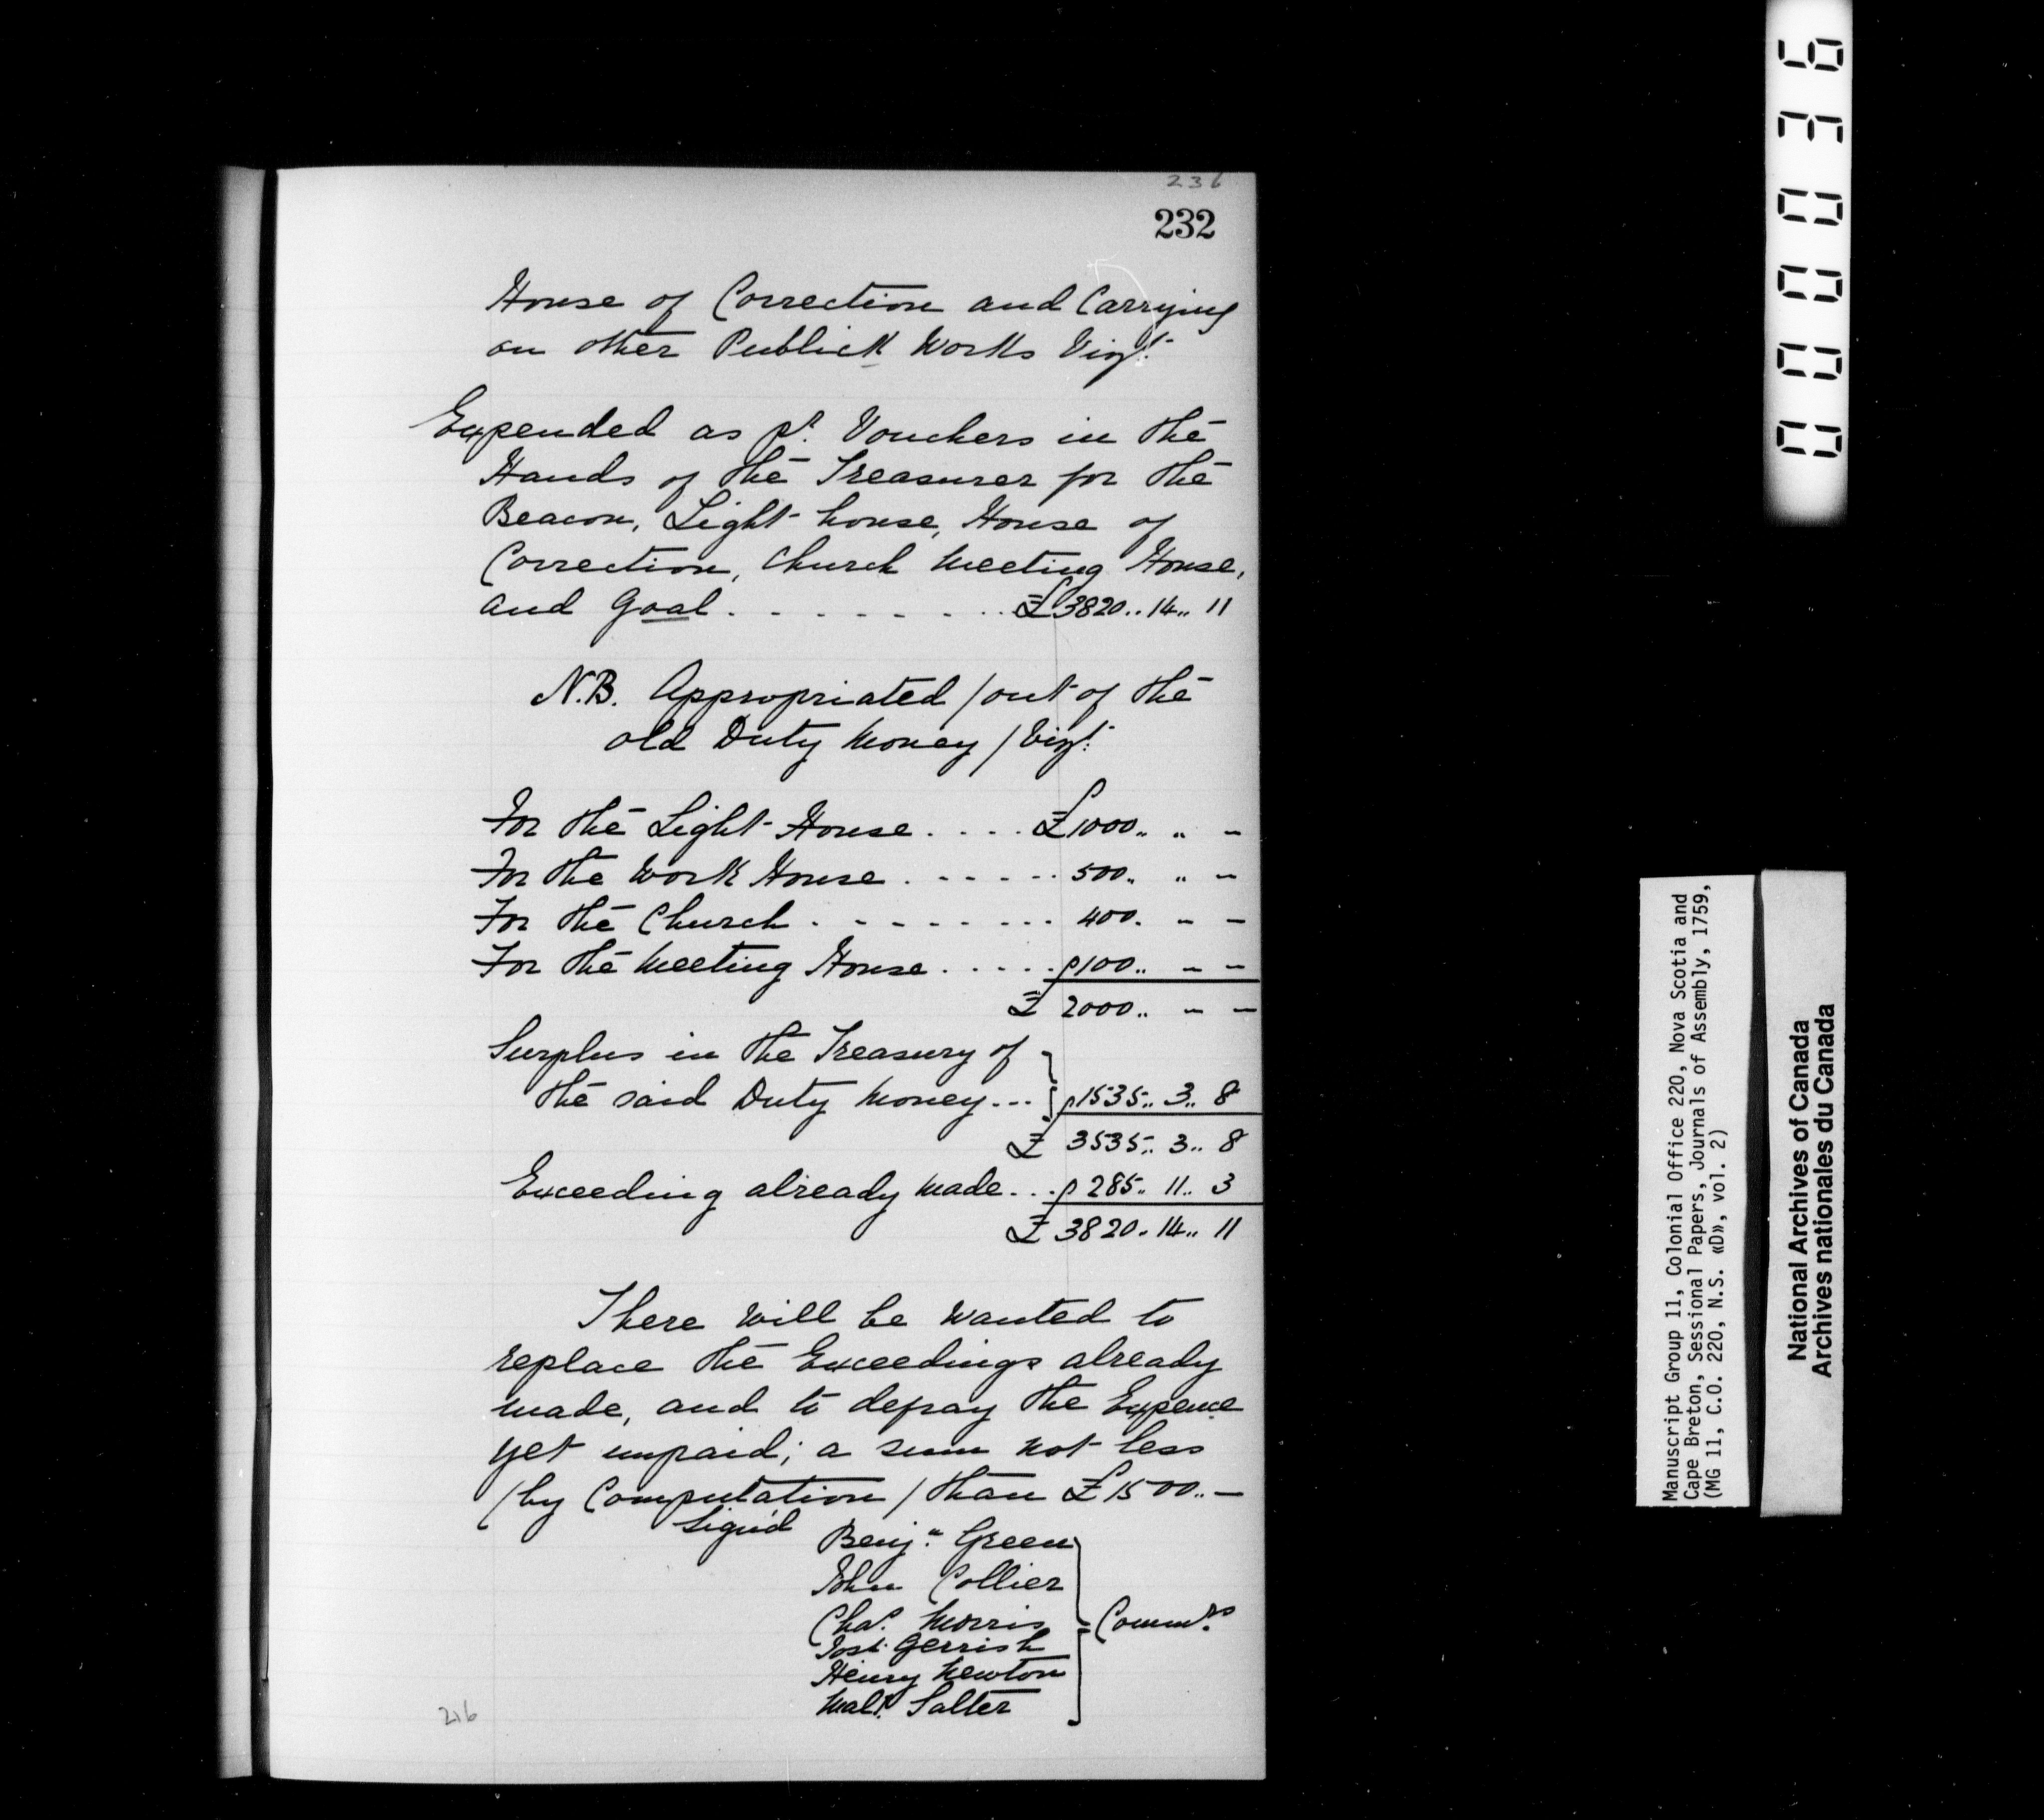 236
232
House of Correction and Carrying
on other Publick Works Vizt.
Expended as pr. Vouchers in the
Hands of the Treasurer for the
Beacon, Light house, House of
Correction, Church Meeting House,
and Goal . . . . . . . . . £3820.. 14.. 11
N.B. Appropriated / out of the
old Duty Money / Vizt.
For the Light House . . . . £1000.. „ –
For the Work House . . . . . . 500.. „ –
For the Church . . . . . . . . . 400. – –
For the Meeting House . . . . . 100.. – –
£ 2000.. – –
Surplus in the Treasury of
the said Duty Money... 1535.. 3.. 8
£ 3535.. 3.. 8
Exceeding already made... 285.. 11.. 3
£ 3820.. 14.. 11
There will be wanted to
replace the Exceedings already
made, and to defray the Expence
yet unpaid; a sum not less
/by Computation / than £1500.. –
Sign'd
Benj.n Green
John Collier
Chas. Morris
Josh. Gerrish
Henry Newton
Malr. Salter
Commrs.
216
000036
Manuscript Group 11, Colonial Office 220, Nova Scotia and
Cape Breton, Sessional Papers, Journals of Assembly, 1759,
(MG 11, C.O. 220, N.S. «D», vol. 2)
National Archives of Canada
Archives nationales du Canada